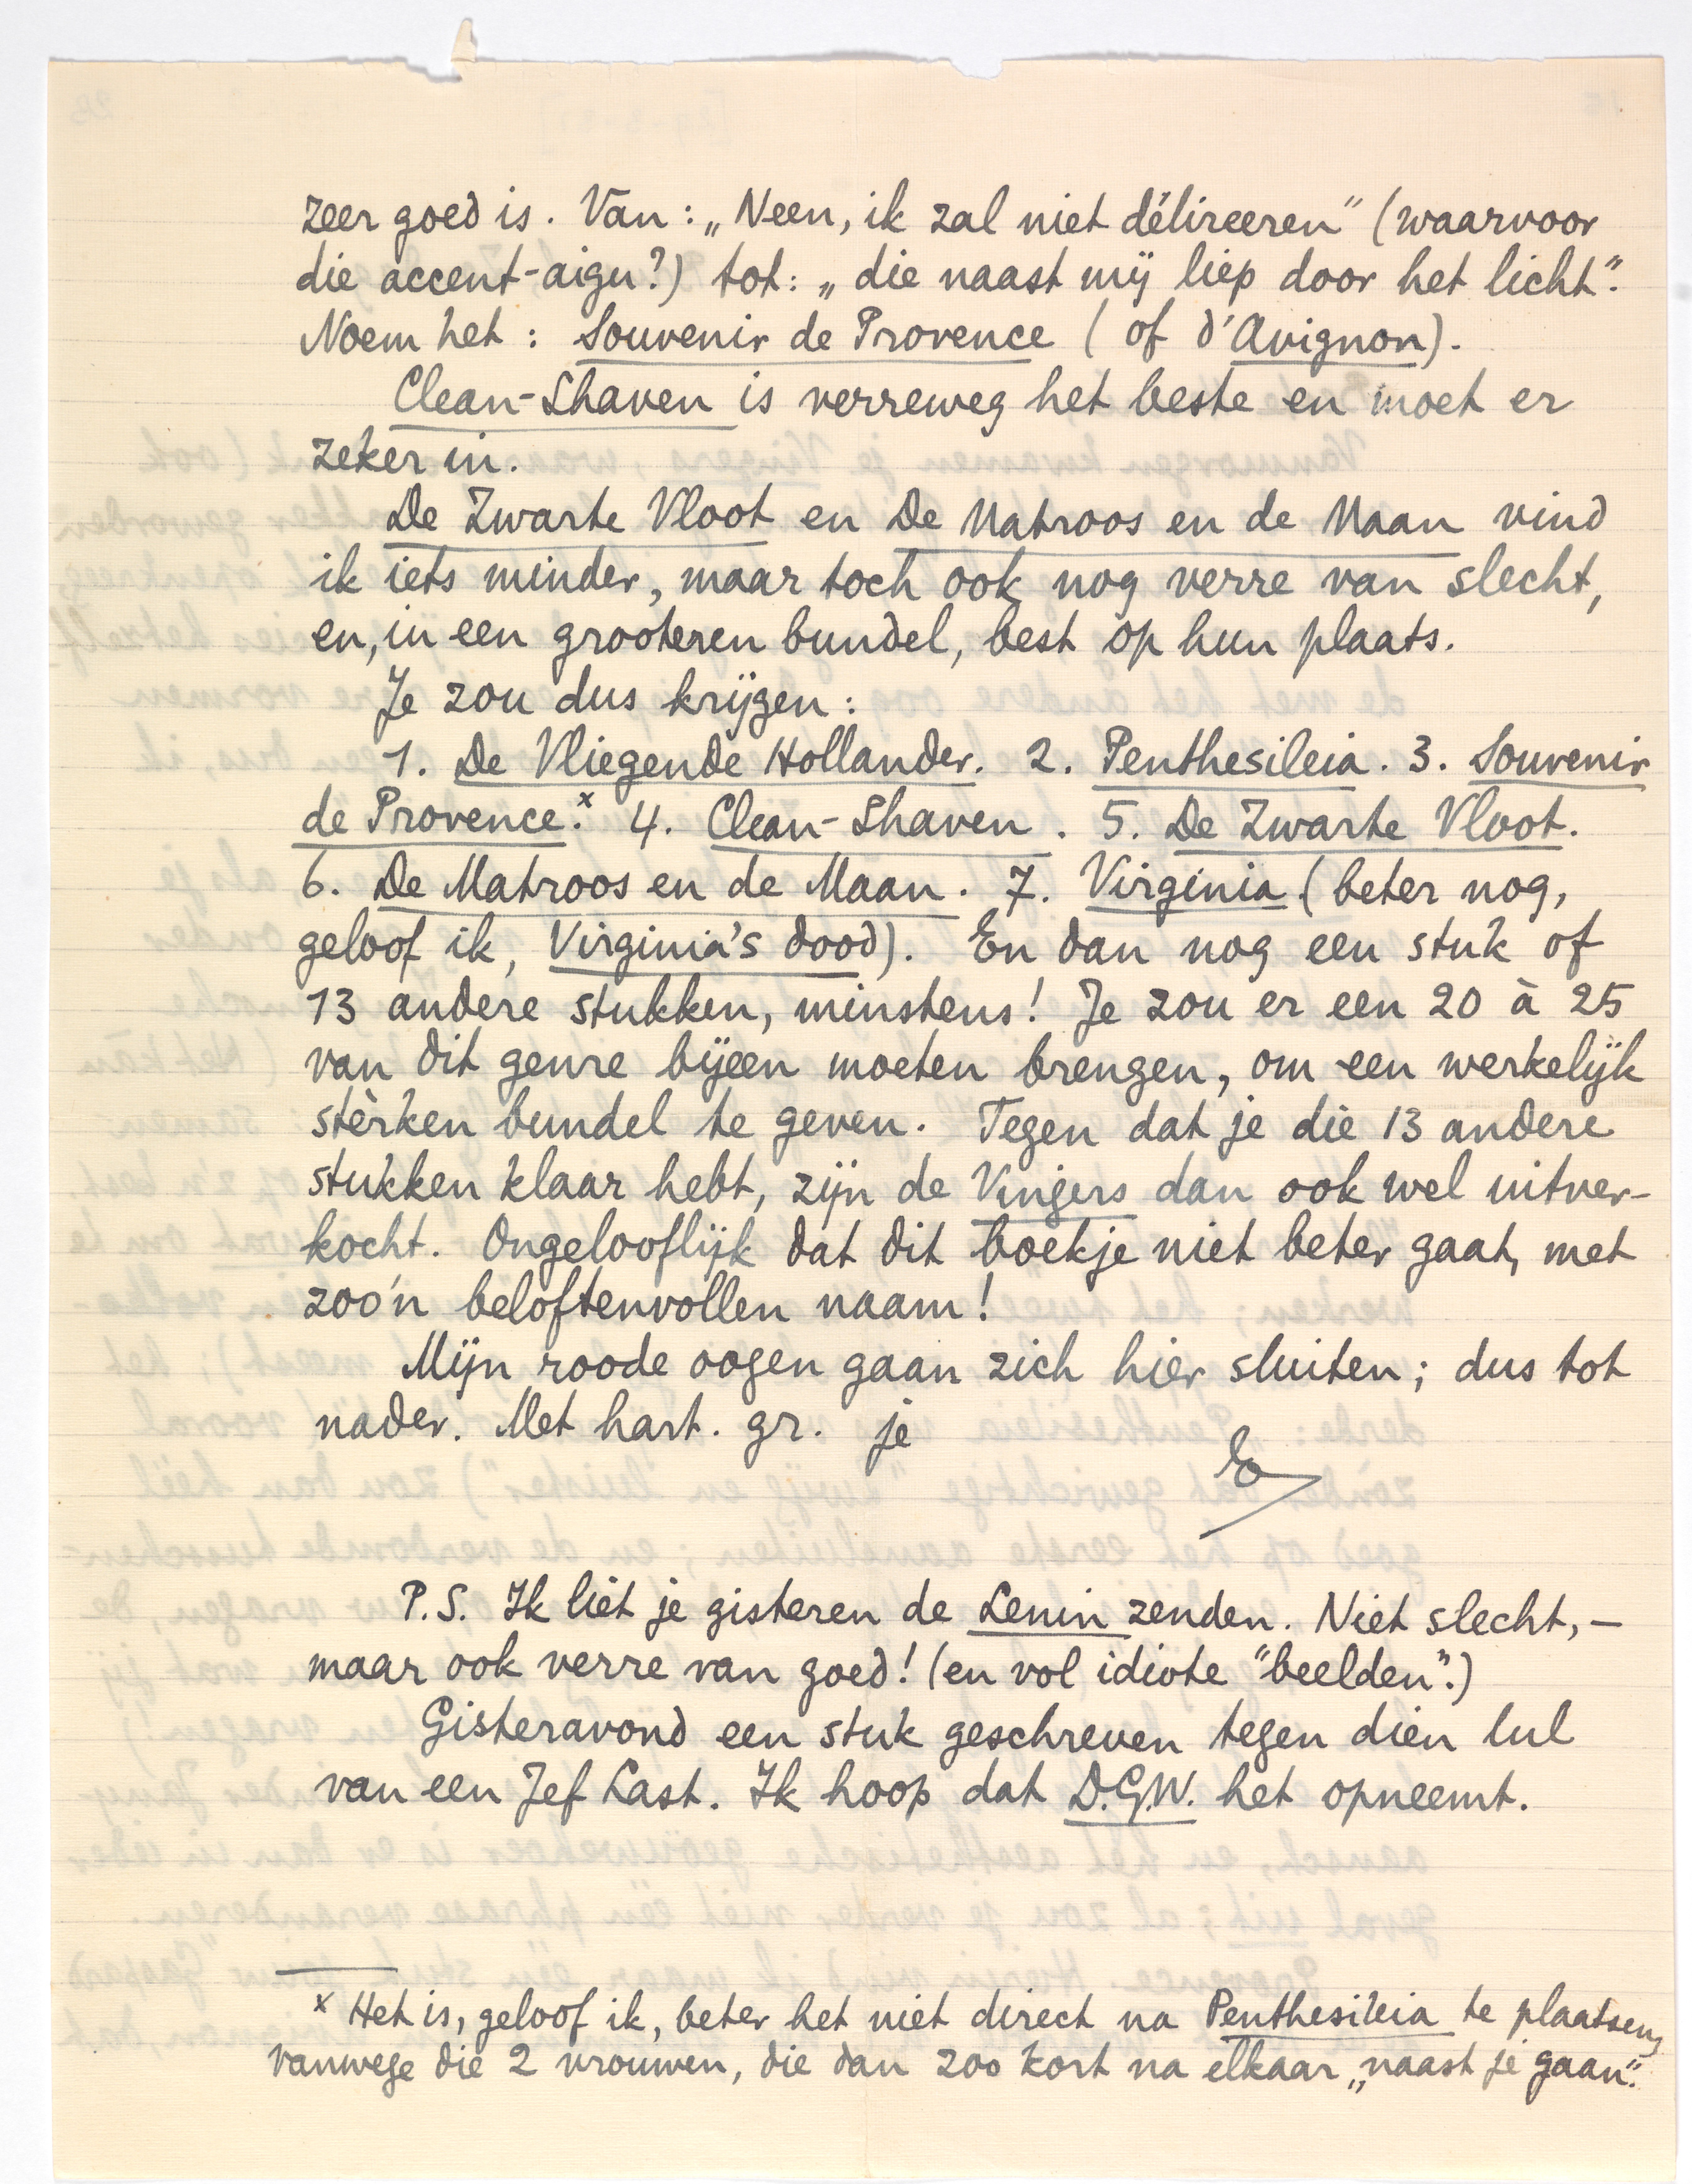 zeer goed is. Van: „Neen, ik zal niet délireeren" (waarvoor
die accent-aigu?) tot: „die naast mij liep door het licht".
Noem het: Souvenir de Provence (of d'Avignon).
Clean-Shaven is verreweg het beste en moet er
zeker in.
De Zwarte Vloot en De Matroos en de Maan vind
ik iets minder, maar toch ook nog verre van slecht,
en, in een grooteren bundel, best op hun plaats.
Je zou dus krijgen:
1. De Vliegende Hollander. 2. Penthesileia. 3. Souvenir
de Provence.x 4. Clean-Shaven. 5. De Zwarte Vloot.
6. De Matroos en de Maan. 7. Virginia (beter nog,
geloof ik, Virginia's dood). En dan nog een stuk of
13 andere stukken, minstens! Je zou er een 20 à 25
van dit genre bijeen moeten brengen, om een werkelijk
stèrken bundel te geven. Tegen dat je die 13 andere
stukken klaar hebt, zijn de Vingers dan ook wel uitver-
kocht. Ongelooflijk dat dit boekje niet beter gaat, met
zoo'n beloftenvollen naam!
Mijn roode oogen gaan zich hier sluiten; dus tot
nader. Met hart. gr. je
E
P.S. Ik liet je gisteren de Lenin zenden. Niet slecht, —
maar ook verre van goed! (en vol idiote "beelden".)
Gisteravond een stuk geschreven tegen dien lul
van een Jef Last. Ik hoop dat D.G.W. het opneemt.
x Het is, geloof ik, beter het niet direct na Penthesileia te plaatsen,
vanwege die 2 vrouwen, die dan zoo kort na elkaar „naast je gaan".